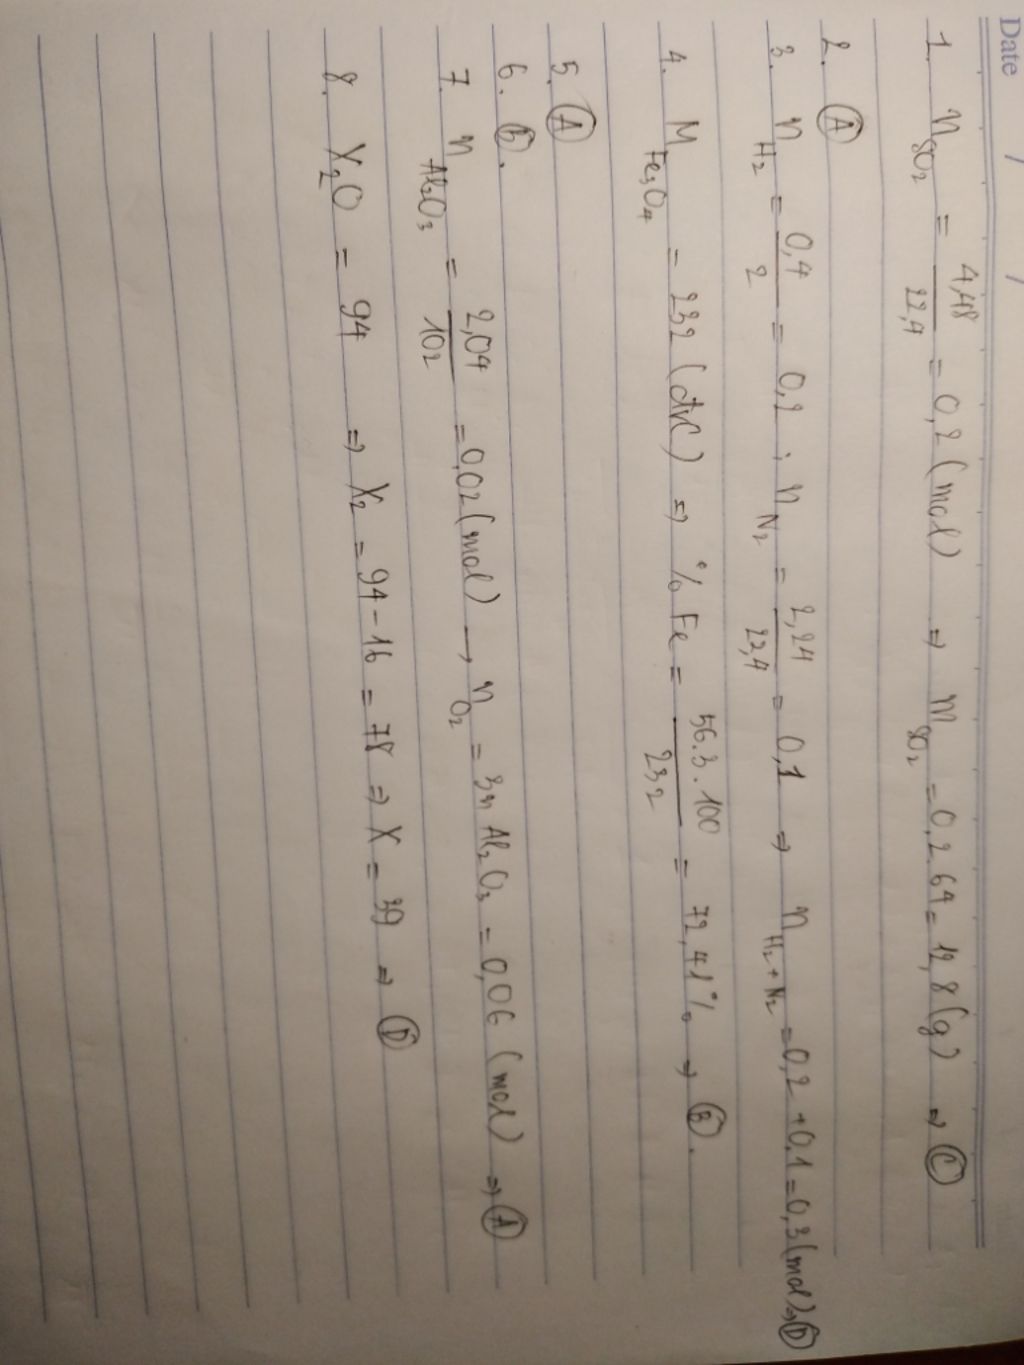 Date / /
1. n SO2 = 4,48 / 22,4 = 0,2 (mol) ⇒ m SO2 = 0,2.64 = 12,8 (g) ⇒ C
2. A
3. n H2 = 0,4 / 2 = 0,2 ; n N2 = 2,24 / 22,4 = 0,1 ⇒ n H2 + N2 = 0,2 + 0,1 = 0,3 (mol) ⇒ D
4. M Fe3O4 = 232 (đvC) ⇒ % Fe = 56.3.100 / 232 = 72,41% ⇒ B.
5. A
6. B.
7. n Al2O3 = 2,04 / 102 = 0,02 (mol) → n O2 = 3n Al2O3 = 0,06 (mol) ⇒ A
8. X2O = 94 ⇒ X2 = 94 - 16 = 78 ⇒ X = 39 ⇒ D